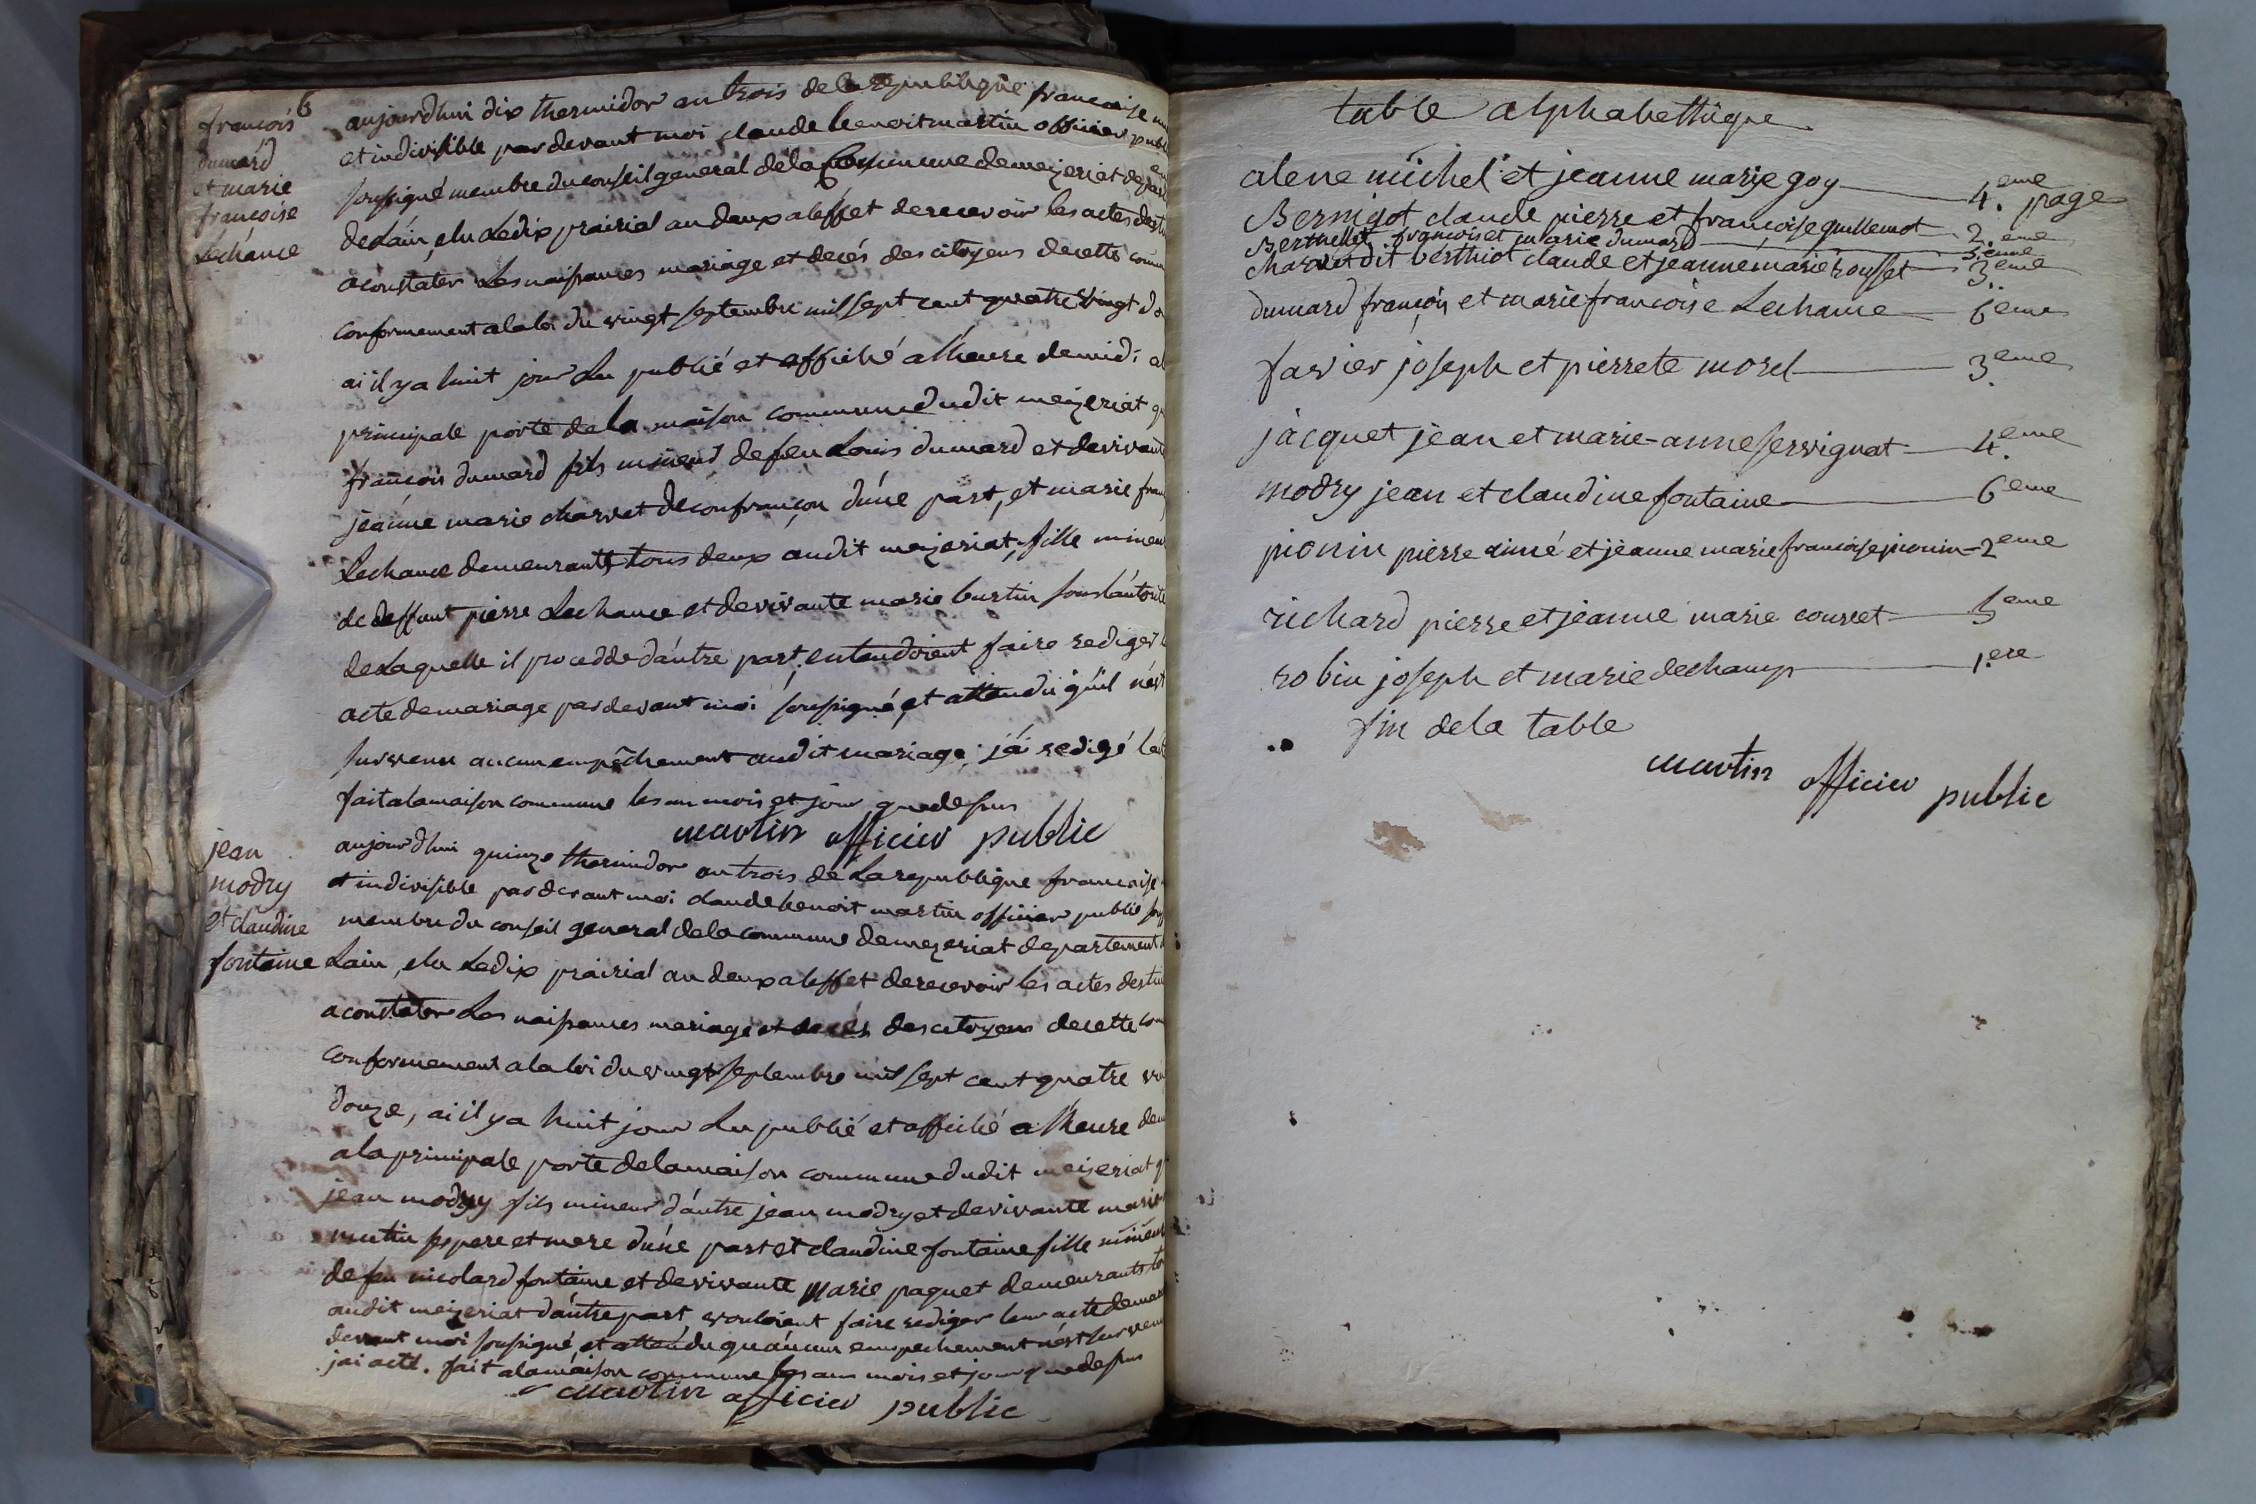 6
françois
dumard
et marie
françoise
Lechance
aujourdhui dix thermidor an trois de la republique francaise
et indivisible pardevant moi claude benoit martin officier publ
soussigné membre du conseil general dela Commune demezeriat
delain, elu Ledix prairial an deux aleffet derecevoir les actes
aconstater Les naissances mariage et decés des citoyens decette comm
conformement alaloi du vingt septembre mil sept cent quatre vingt do
ai il ya huit jour Lu publié et affiché alheure demidi
principale porte dela maison commune dudit meizeriat
françois dumard fils mineur defeu Louis dumard et devivante
jeanne marie charvet deconfrançon dúne part, et marie fran
Lechance demeurants tous deux audit meizeriat, fille mineur
de deffunt pierre Lechance et devivante marie burtin souslautorité
delaquelle il procedde dautre part, entendoient faire rediger
acte demariage pardevant moi soussigné, et attendu quil nest
survenu aucun empêchement audit mariage, jai redigé
fait alamaison commune les an mois et jour quedessus
martin officier public
jean
modry
et claudine
fontaine
aujourdhui quinze thermidor an trois de La republique francaise
et indivisible pardevant moi claude benoit martin officier public
membre du conseil general dela commune demezeriat departement
Lain, elu Ledix prairial an deux aleffet derecevoir les actes
aconstater Les naissances mariage et decés des citoyens decette com
conformement alaloi du vingt septembre mil sept cent quatre
douze, ai il ya huit jour Lu publié et affiché a lheure
ala principale porte delamaison commune dudit meizeriat
jean modry fils mineur dautre jean modry et devivante marie
mutin ses pere et mere dúne part et claudine fontaine fille mineur
defeu nicolard fontaine et devivante Marie paquet demeurants
audit meizeriat dautre part, vouloient faire rediger leur acte
devant moi soussigné, et attendu quaucun empechement nest survenu
jai acté. fait alamaison commune les an mois et jour quedessus
martin officier public
table alphabettique
alene michel et jeanne marie goy 4.eme page
Bernigot claude pierre et françoise guillemot 2.eme
Berthellet françois et marie dumard 5.eme
charvet dit berthiot claude et jeanne marie rousset 3.eme
dumard françois et marie françoise Lechance 6eme
favier joseph et pierrete morel 3.eme
jacquet jean et marie-anne servignat 4.eme
modry jean et claudine fontaine 6eme
pionin pierre aimé et jeanne marie francoise pionin 2eme
richard pierre et jeanne marie couvet 5eme
robin joseph et marie dechamp 1.ere
fin dela table
martin officier public